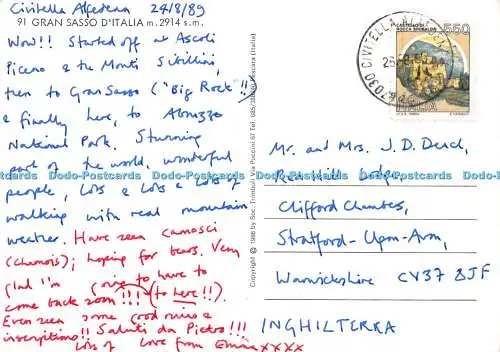 Civitella Alfedena 24/8/89
91 GRAN SASSO D'ITALIA m. 2914 s.m.
Wow!! Started off at Ascoli
Piceno & the Monti Sibillini,
then to Gran Sasso ("Big Rock"!!)
& finally here, to Abruzzo
National Park. Stunning
part of the world, wonderful
people, Lots & Lots & Lots of
walking with real mountain
weather. Have seen camosci
(chamois); hoping for bears. Very
glad I'm going to have to
come back soon!!! (to here!!).
Even seen some good ruins &
inscriptions!! Saluti da Pietro!!!
Lots of love from Emma xxxx
Copyright © 1986 by Soc. Trimboli Via Puccini 67 Tel.
Pescara (Italia)
CIVITELLA
CASTELLO DI
ROCCA SINIBALDA
550
ITALIA
Mr. and Mrs. J.D.
Lodge,
Clifford Chambers,
Stratford-Upon-Avon,
Warwickshire CV37 8JF
INGHILTERRA
Dodo-Postcards Dodo-Postcards Dodo-Postcards Dodo-Postcards Dodo-Postcards Dodo-Postcards